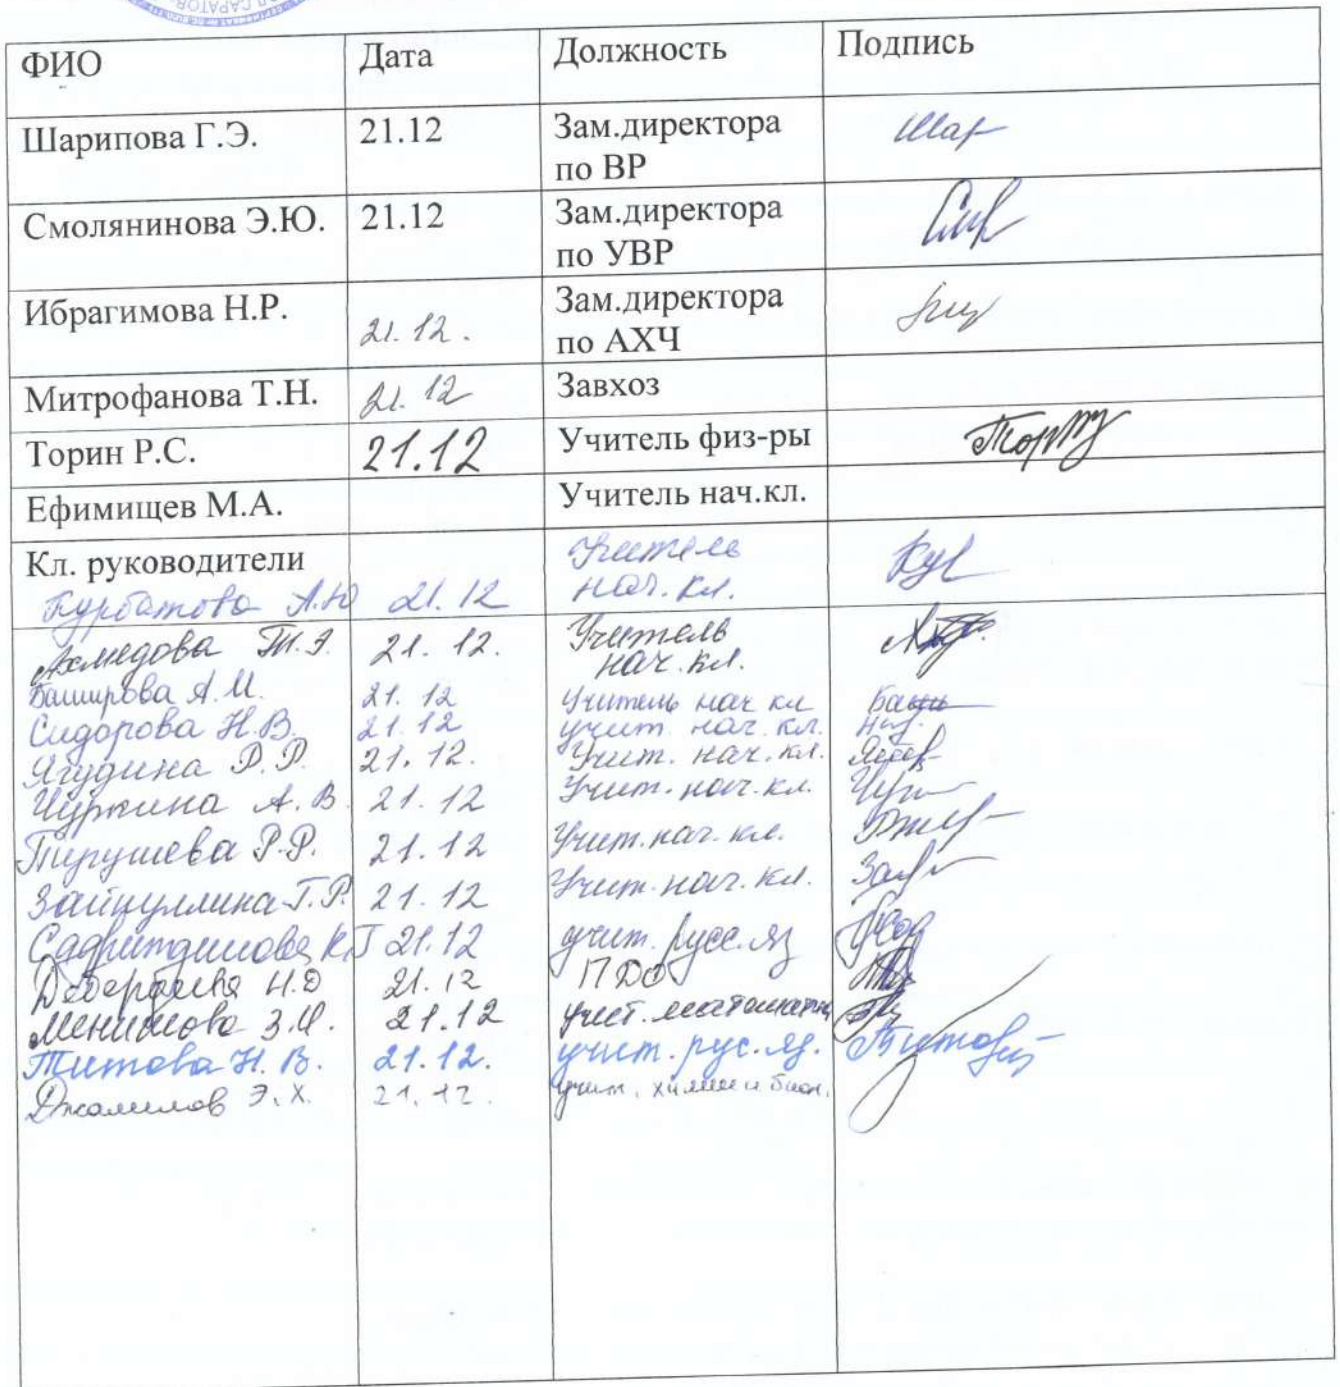 САРАТОВ
ФИО Дата Должность Подпись
Шарипова Г.Э. 21.12 Зам.директора Шар
по ВР
Смолянинова Э.Ю. 21.12 Зам.директора
по УВР
Ибрагимова Н.Р. 21.12. Зам.директора
по АХЧ
Митрофанова Т.Н. 21.12 Завхоз
Торин Р.С. 21.12 Учитель физ-ры
Ефимищев М.А. Учитель нач.кл.
Кл. руководители Учитель
Курбатова А.Ю 21.12 нач. кл.
Ахмедова Т.Э. 21.12. Учитель
нач. кл.
Баширова А.И. 21.12 Учитель нач кл
Сидорова Н.В. 21.12 учит. нач. кл.
Ягудина Р.Р. 21.12. Учит. нач. кл.
Чуркина А.В 21.12 Учит. нач. кл.
Р.Р. 21.12 Учит. нач. кл.
Зайнуллина Г.Р. 21.12 Учит. нач. кл.
21.12 учит. русс. яз
Дебердеева Н.О 21.12 ПДО
З.И. 21.12 учит. математики
Титова Н.В. 21.12. учит. рус. яз. Титова
Джалилов Э.Х. 21.12. учит. химии и биол.